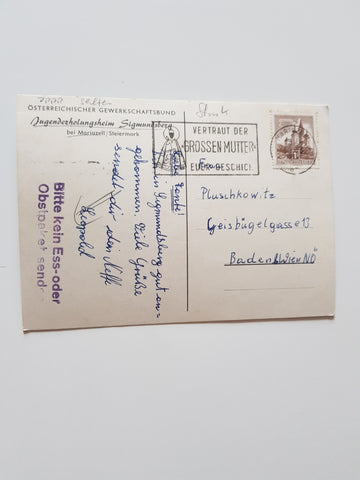 7000 selten
ÖSTERREICHISCHER GEWERKSCHAFTSBUND
Jugenderholungsheim Sigmundsberg
bei Mariazell/Steiermark
VERTRAUT DER
"GROSSEN MUTTER"
EUER GESCHICK
Liebe Tante!
Bin in Sigmundsberg gut an-
gekommen. Viele Grüße
sendet dir dein Neffe
Leopold
Bitte kein Ess-oder
Obstpaket senden
Frau
Pluschkowitz
Geisbügelgasse 13
Baden b/Wien NÖ